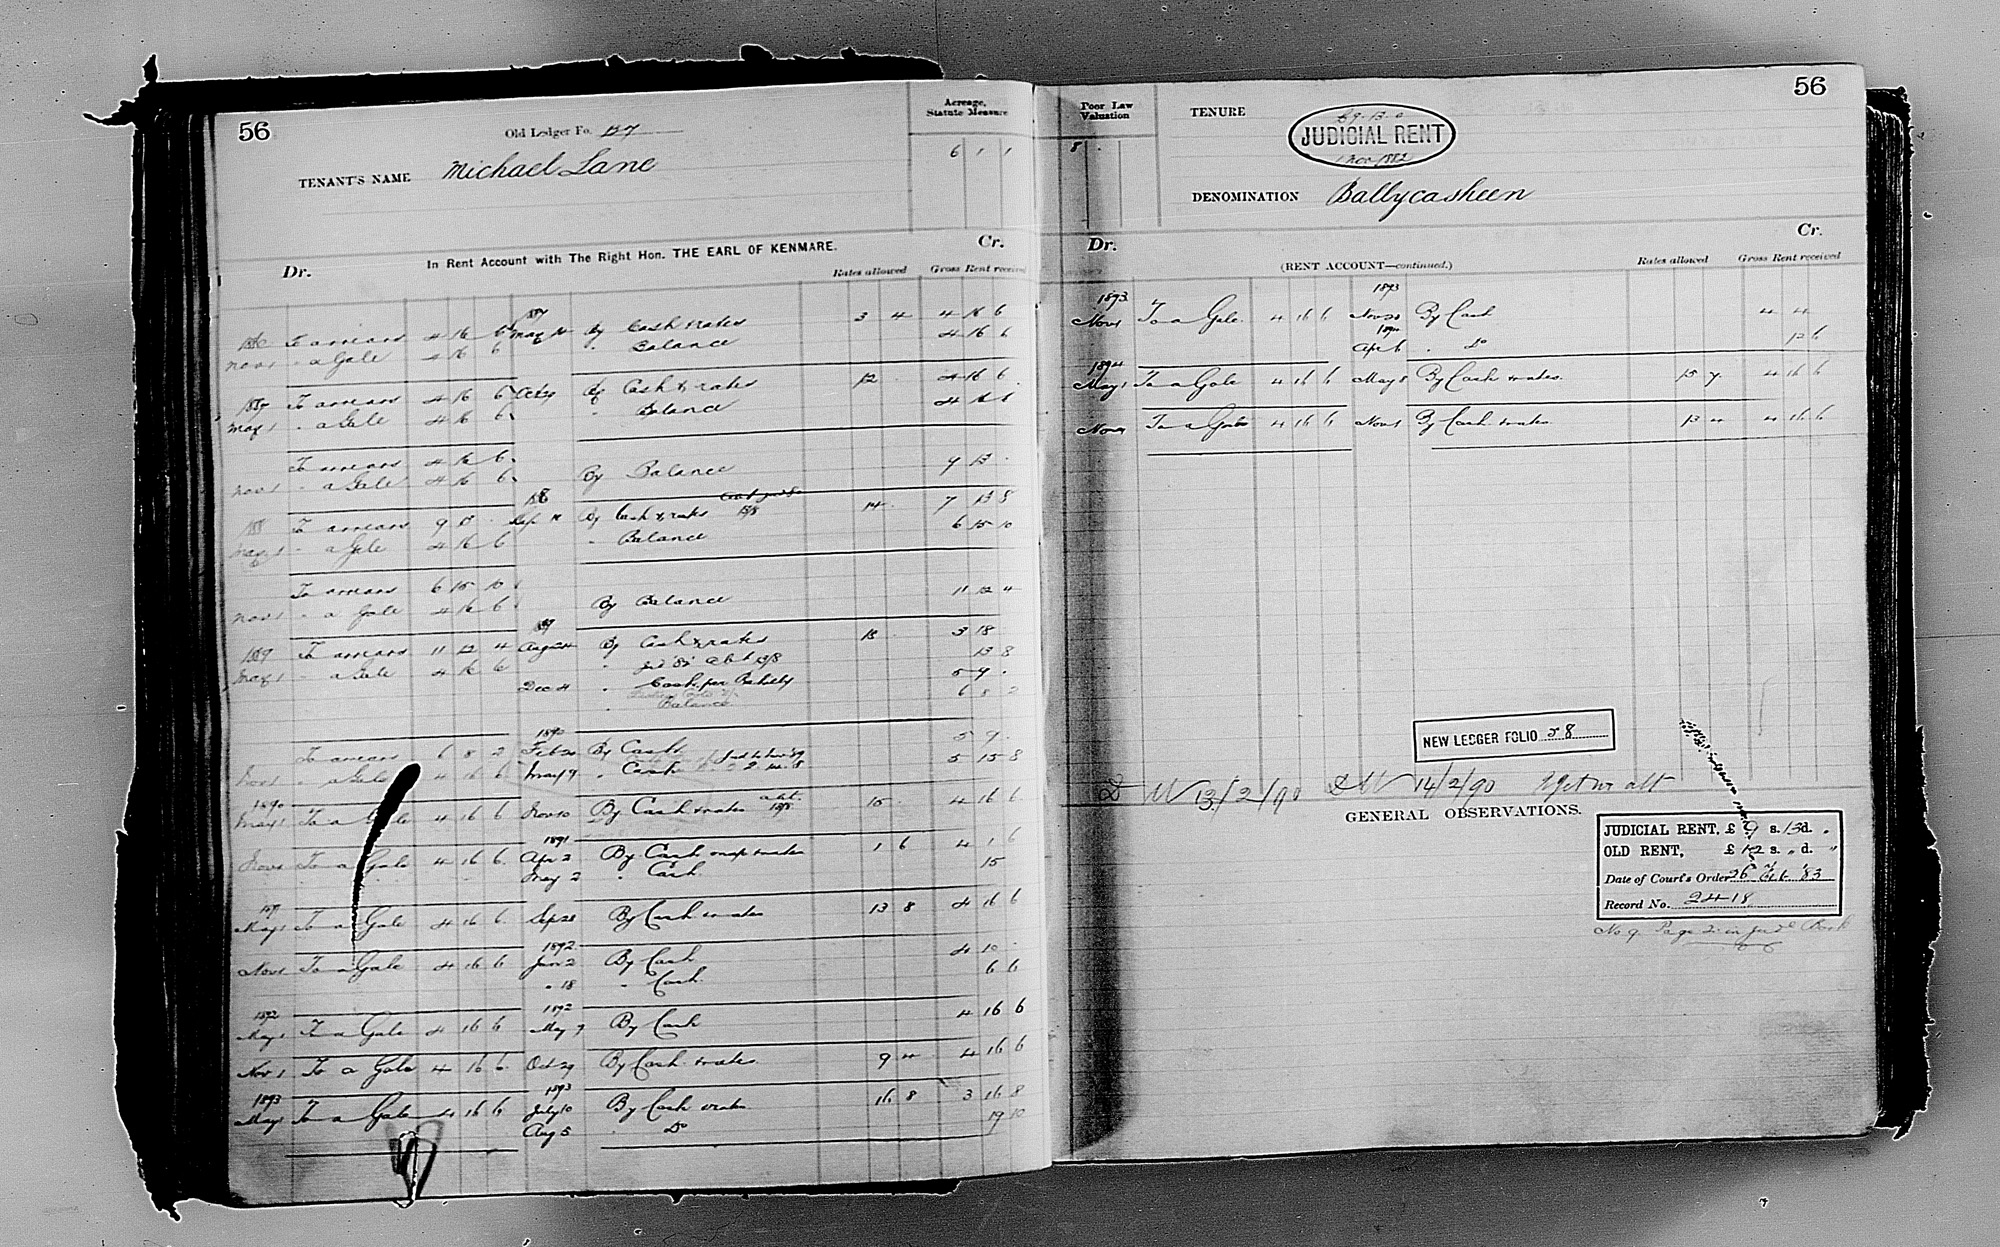 56
Old Ledger Fo. 157
TENANT'S NAME Michael Lane
Acreage, Statute Measure
6 1 1
In Rent Account with The Right Hon. THE EARL OF KENMARE.
Dr. Cr.
Rates allowed Gross Rent received
1886 To arrears 4 16 6 1887 May By Cash & rates 3 4 4 16 6
Nov 1 " a Gale 4 16 6 " Balance 4 16 6
1887 To arrears 4 16 6 Oct By Cash & rates 12 4 16 6
May 1 " a Gale 4 16 6 " Balance 4 16 6
To arrears 4 16 6
Nov 1 " a Gale 4 16 6 By Balance 9 13 .
1888 To arrears 9 13 . 1888 Sep By Cash & rates 13/8 14 . 7 13 8
May 1 " a Gale 4 16 6 " Balance 6 15 10
To arrears 6 15 10
Nov 1 " a Gale 4 16 6 By Balance 11 12 4
1889 To arrears 11 12 4 1889 Aug By Cash & rates 18 . 3 18
May 1 " a Gale 4 16 6 " abt 13/8 13 8
Dec 4 " Cash per Bailiff 5 9 .
" Balance 6 8 2
1890
To arrears 6 8 2 Feb 20 By Cash 5 9 .
Nov 1 " a Gale 4 16 6 May 9 " Cash 5 15 8
1890 May 1 To a Gale 4 16 6 Nov 10 By Cash & rates abt. 13/8 15 . 4 16 6
1891
Nov 1 To a Gale 4 16 6 Apr 2 By Cash & rates 1 6 4 1 6
May 2 " Cash 15
1891 May 1 To a Gale 4 16 6 Sep 28 By Cash & rates 13 8 4 16 6
1892
Nov 1 To a Gale 4 16 6 Jan 2 By Cash 4 10 .
" 18 " Cash 6 6
1892 1892
May 1 To a Gale 4 16 6 May 7 By Cash 4 16 6
Nov 1 To a Gale 4 16 6 Oct 29 By Cash & rates 9 4 4 16 6
1893 1893
May 1 To a Gale 4 16 6 July 10 By Cash & rates 16 8 3 16 8
Aug 5 " Do 19 10
56
Poor Law Valuation
8 .
TENURE
£9-13-0
JUDICIAL RENT
1 Nov 1882
DENOMINATION Ballycasheen
Dr. Cr.
(RENT ACCOUNT—continued.)
Rates allowed Gross Rent received
1893 1893
Nov 1 To a Gale 4 16 6 Nov 20 By Cash 4 4
1894 Apr 6 " Do 12 6
1894
May 1 To a Gale 4 16 6 May 8 By Cash & rates 15 7 4 16 6
Nov 1 To a Gale 4 16 6 Nov 1 By Cash & rates 13 4 4 16 6
NEW LEDGER FOLIO 58
13/2/90 14/2/90
GENERAL OBSERVATIONS.
JUDICIAL RENT, £ 9 s. 13 d. "
OLD RENT, £ 12 s. " d. "
Date of Court's Order 26 Feb '83
Record No. 2418
No 9. Page 2 in Judl Book